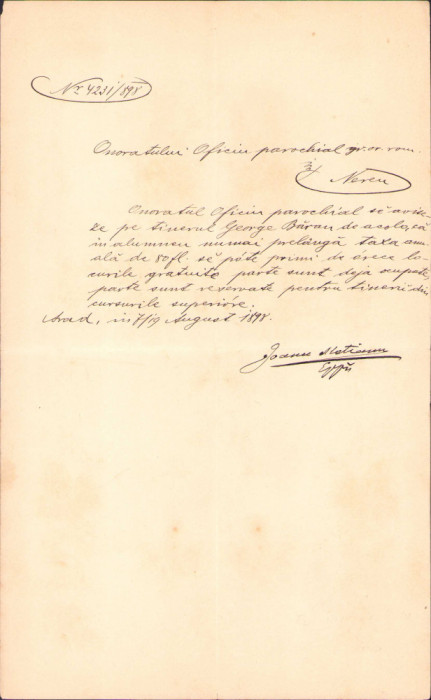 Nr. 4231/898
Onoratului Oficiu parochial gr. or. rom.
în Nereu
Onoratul Oficiu parochial să avise-
ze pe tinerul George Băran de acolo, că
în alumneu numai prelângă taxa anu-
ală de 80 fl. să póte primi de órece lo-
curile gratuite parte sunt deja ocupate
parte sunt reservate pentru tinerii din
cursurile superióre.
Arad, in 7/19 August 1898.
Joanu Metianu
Eppu